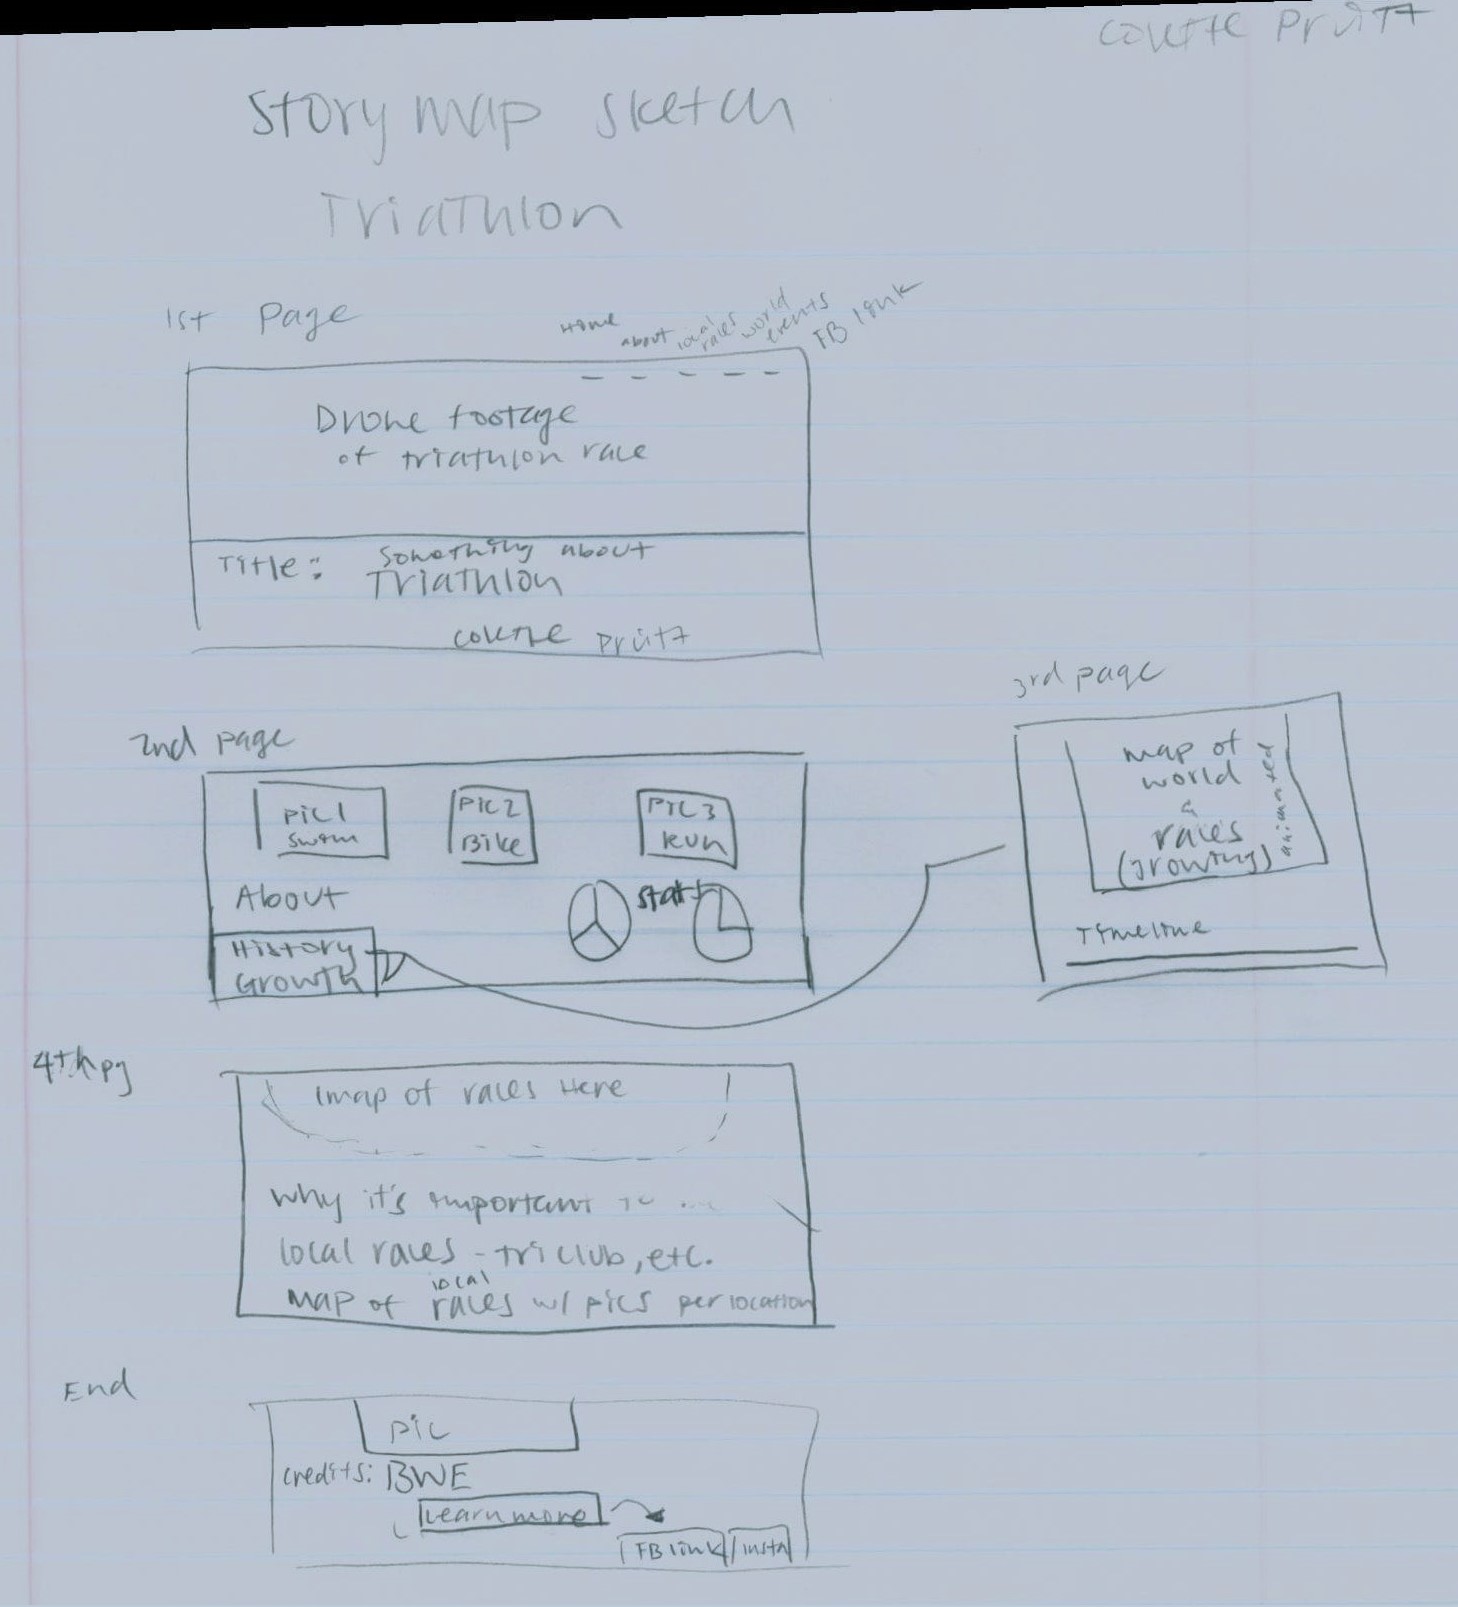 Pruitt
Story map sketch
Triathlon
1st Page
Home
about
local races
world events
FB link
Drone footage
of triathlon race
Title: Something about
Triathlon
Pruitt
2nd page
3rd page
Pic 1
Swim
Pic 2
Bike
Pic 3
Run
About
Stats
History
Growth
map of
world
&
races
(growing)
animated
Timeline
4th pg
map of races Here
why it's important to ...
local races - tri club, etc.
map of local races w/ pics per location
End
pic
credits: BWE
Learn more
FB link
insta